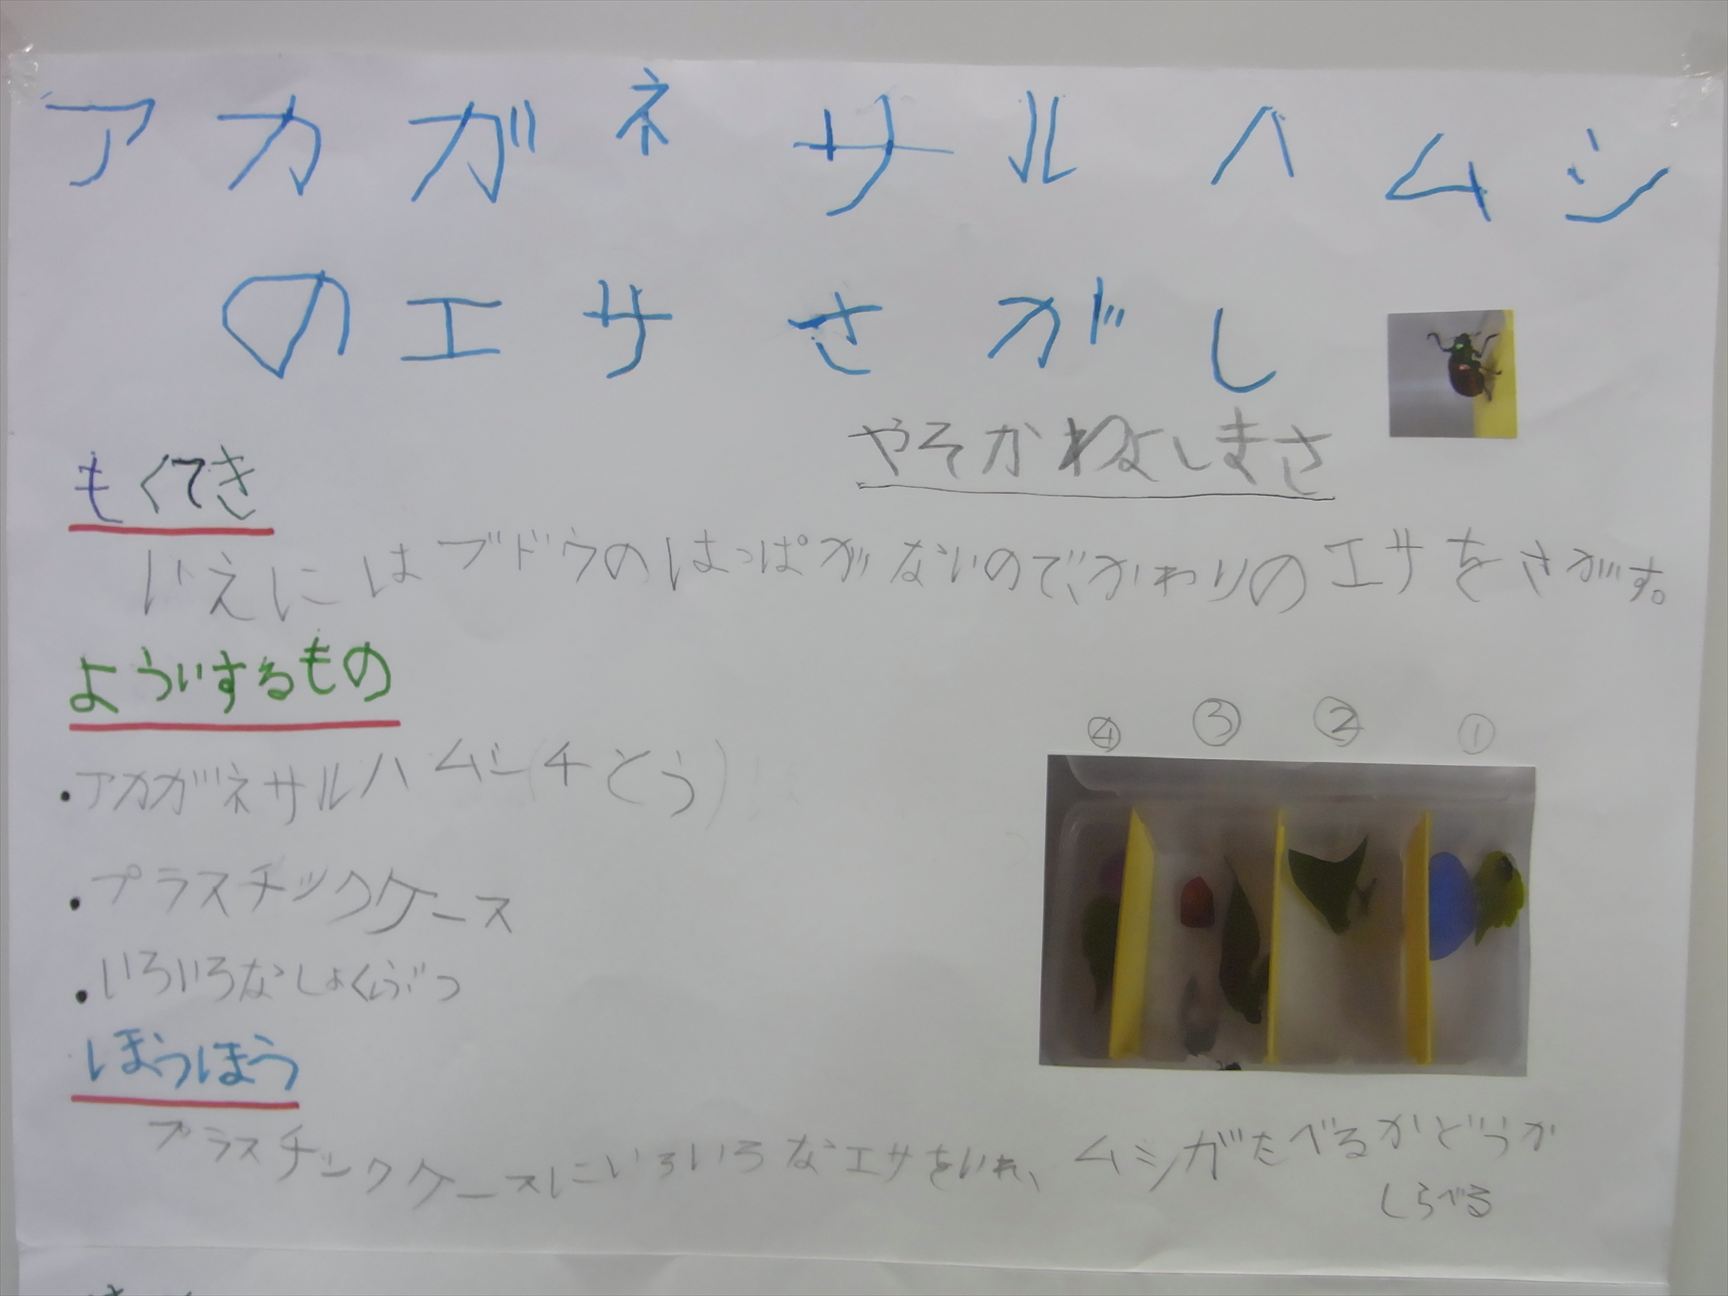 アカガネサルハムシ
のエサさがし
やそかわよしまさ
もくてき
いえにはブドウのはっぱがないので、かわりのエサをさがす。
よういするもの
・アカガネサルハムシ(4とう)
④ ③ ② ①
・プラスチックケース
・いろいろなしょくぶつ
ほうほう
プラスチックケースにいろいろなエサをいれ、ムシがたべるかどうか
しらべる